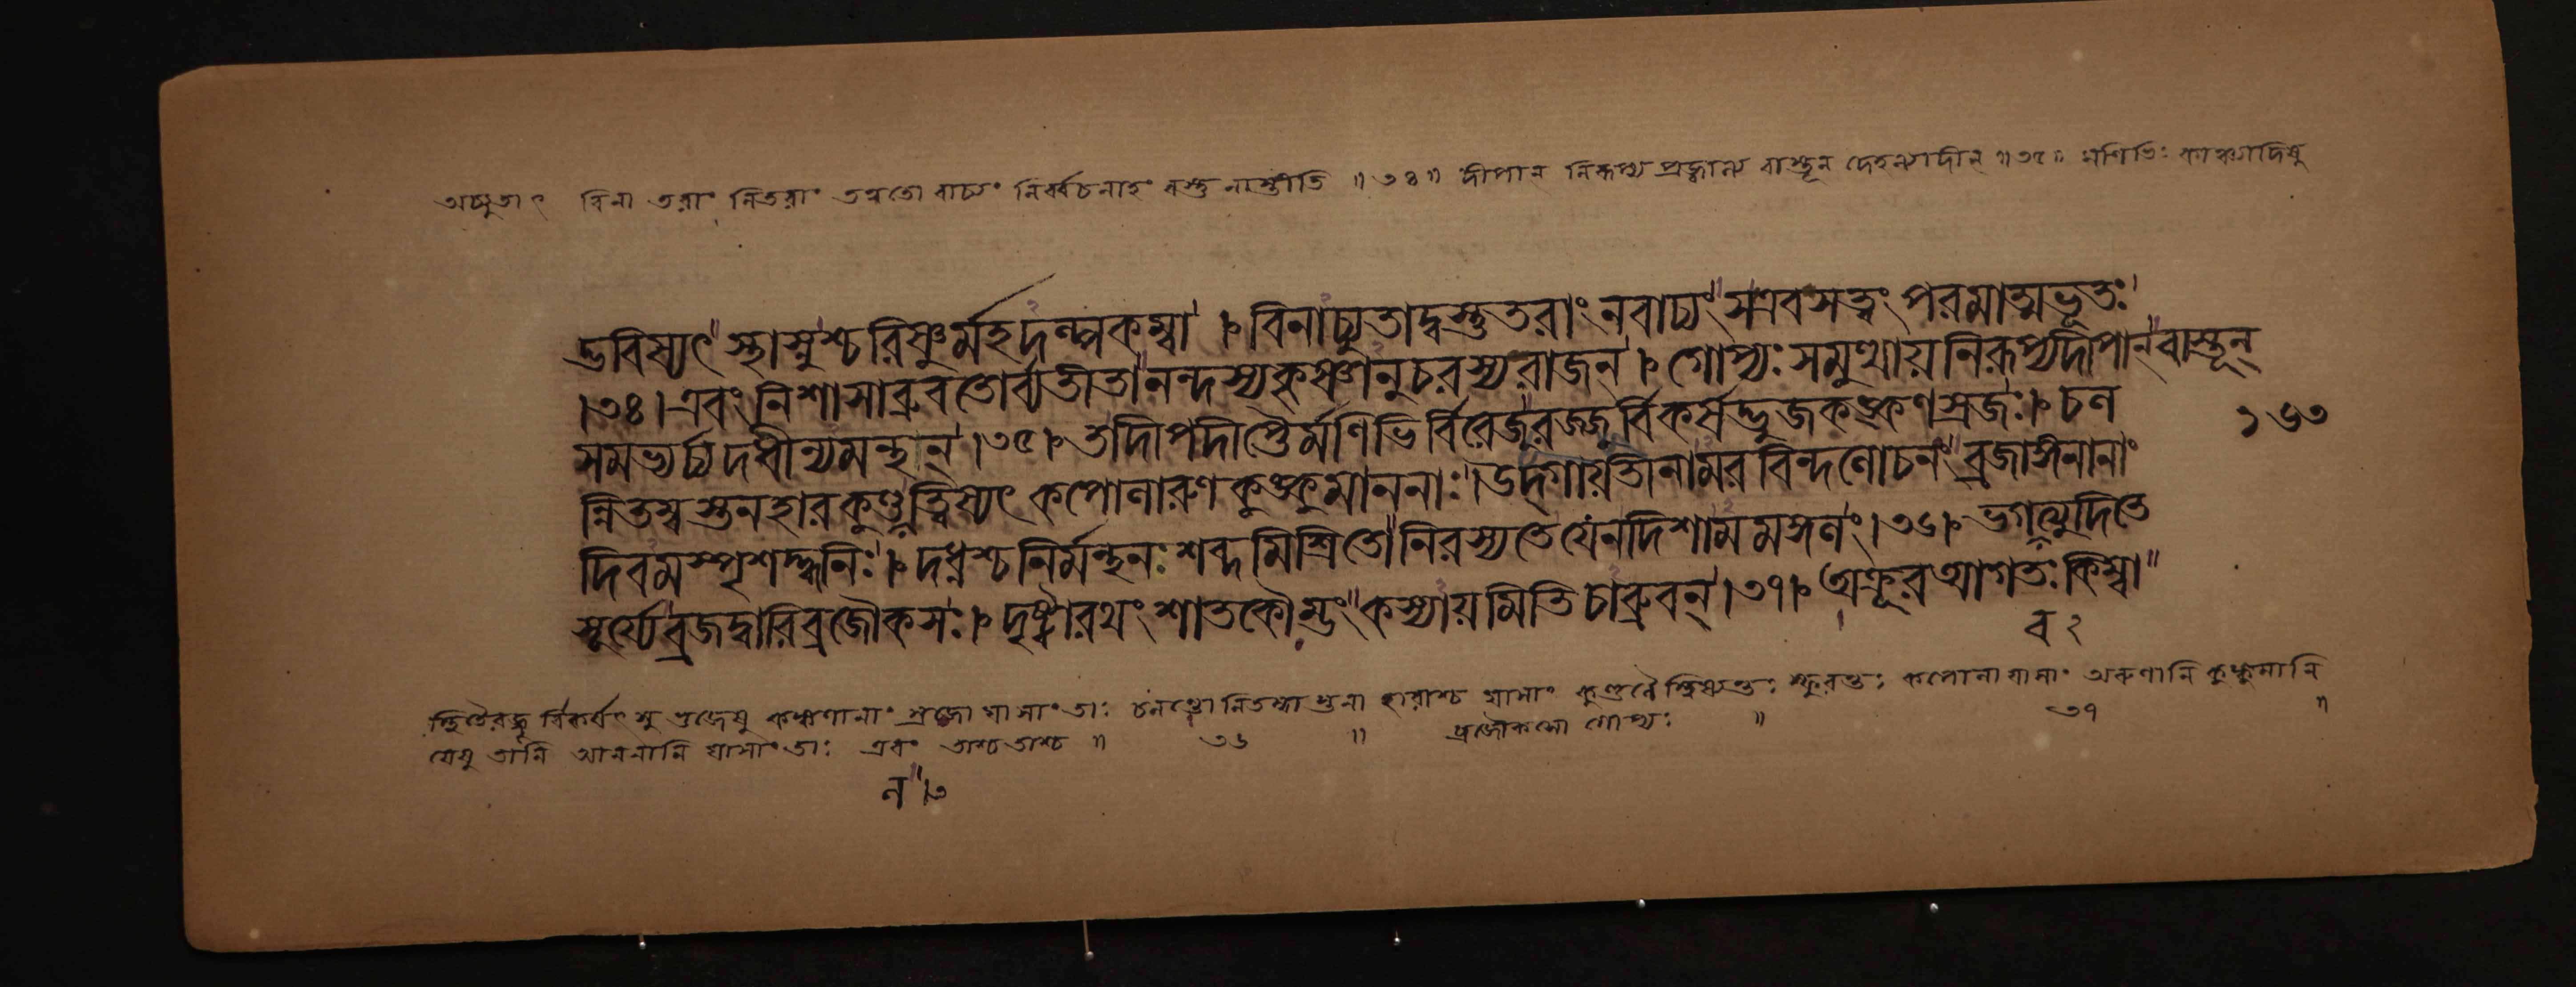 অচ্যুতাৎ বিনা তরাং নিতরাং তত্ত্বতো বাচ্যং নির্ব্বচনার্হং বস্তু নাস্তীতি ॥ ৩৪ ॥ দীপান্ নিরূপ্য প্রজ্বাল্য বাস্তূন্ দেহল্যাদীন্ ॥ ৩৫ ॥ মণিভিঃ কাঞ্চ্যাদিষু
ভবিষ্যৎ স্থাস্নুশ্চরিষ্ণুর্মহদল্পকম্বা । বিনাচ্যুতাদ্বস্তুতরাং নবাচ্যং সএবসর্ব্বং পরমাত্মভূতঃ
। ৩৪ । এবং নিশাসাব্রুবতোর্ব্যতীতা নন্দস্যকৃষ্ণানুচরস্যরাজন্ । গোপ্যঃ সমুত্থায়নিরূপ্যদীপান্ বাস্তূন্
সমভ্যর্চ্চ্যদধীন্যমন্থন্ । ৩৫ । তাদীপদীপ্তৈর্ম্মণিভির্ব্বিরেজূরজ্জুর্ব্বিকর্ষদ্ভুজকঙ্কণস্রজঃ । চল
ন্নিতম্বস্তনহারকুণ্ডলত্বিষ্যৎ কপোলারুণকুঙ্কুমাননাঃ । উদ্গায়তীনামরবিন্দলোচনং ব্রজাঙ্গনানাং
দিবমস্পৃশদ্ধ্বনিঃ । দধ্নশ্চনির্ম্মন্থনঃ শব্দমিশ্রিতো নিরস্যতেযেনদিশামমঙ্গলং । ৩৬ । ভগবত্যুদিতে
সূর্য্যেব্রজদ্বারিব্রজৌকসঃ । দৃষ্ট্বারথং শাতকৌম্ভং কস্যায়মিতিচাব্রুবন্ । ৩৭ । অক্রূরআগতঃকিম্বা
১৬৩
ব ২
স্থিতৈরজ্জূর্বিকর্ষৎসু ভুজেষু কঙ্কণানাং স্রজো যাসাং তাঃ চলন্তো নিতম্বা স্তনা হারাশ্চ যাসাং কুণ্ডলৈস্ত্বিষ্যন্তঃ স্ফুরন্তঃ কপোলা যাসাং অরুণানি কুঙ্কুমানি
যেষু তানি আননানি যাসাং তাঃ এবং তাশ্চতাশ্চ ॥ ৩৬ ॥ ব্রজৌকসো গোপ্যঃ ॥ ৩৭ ॥
ল । ৩